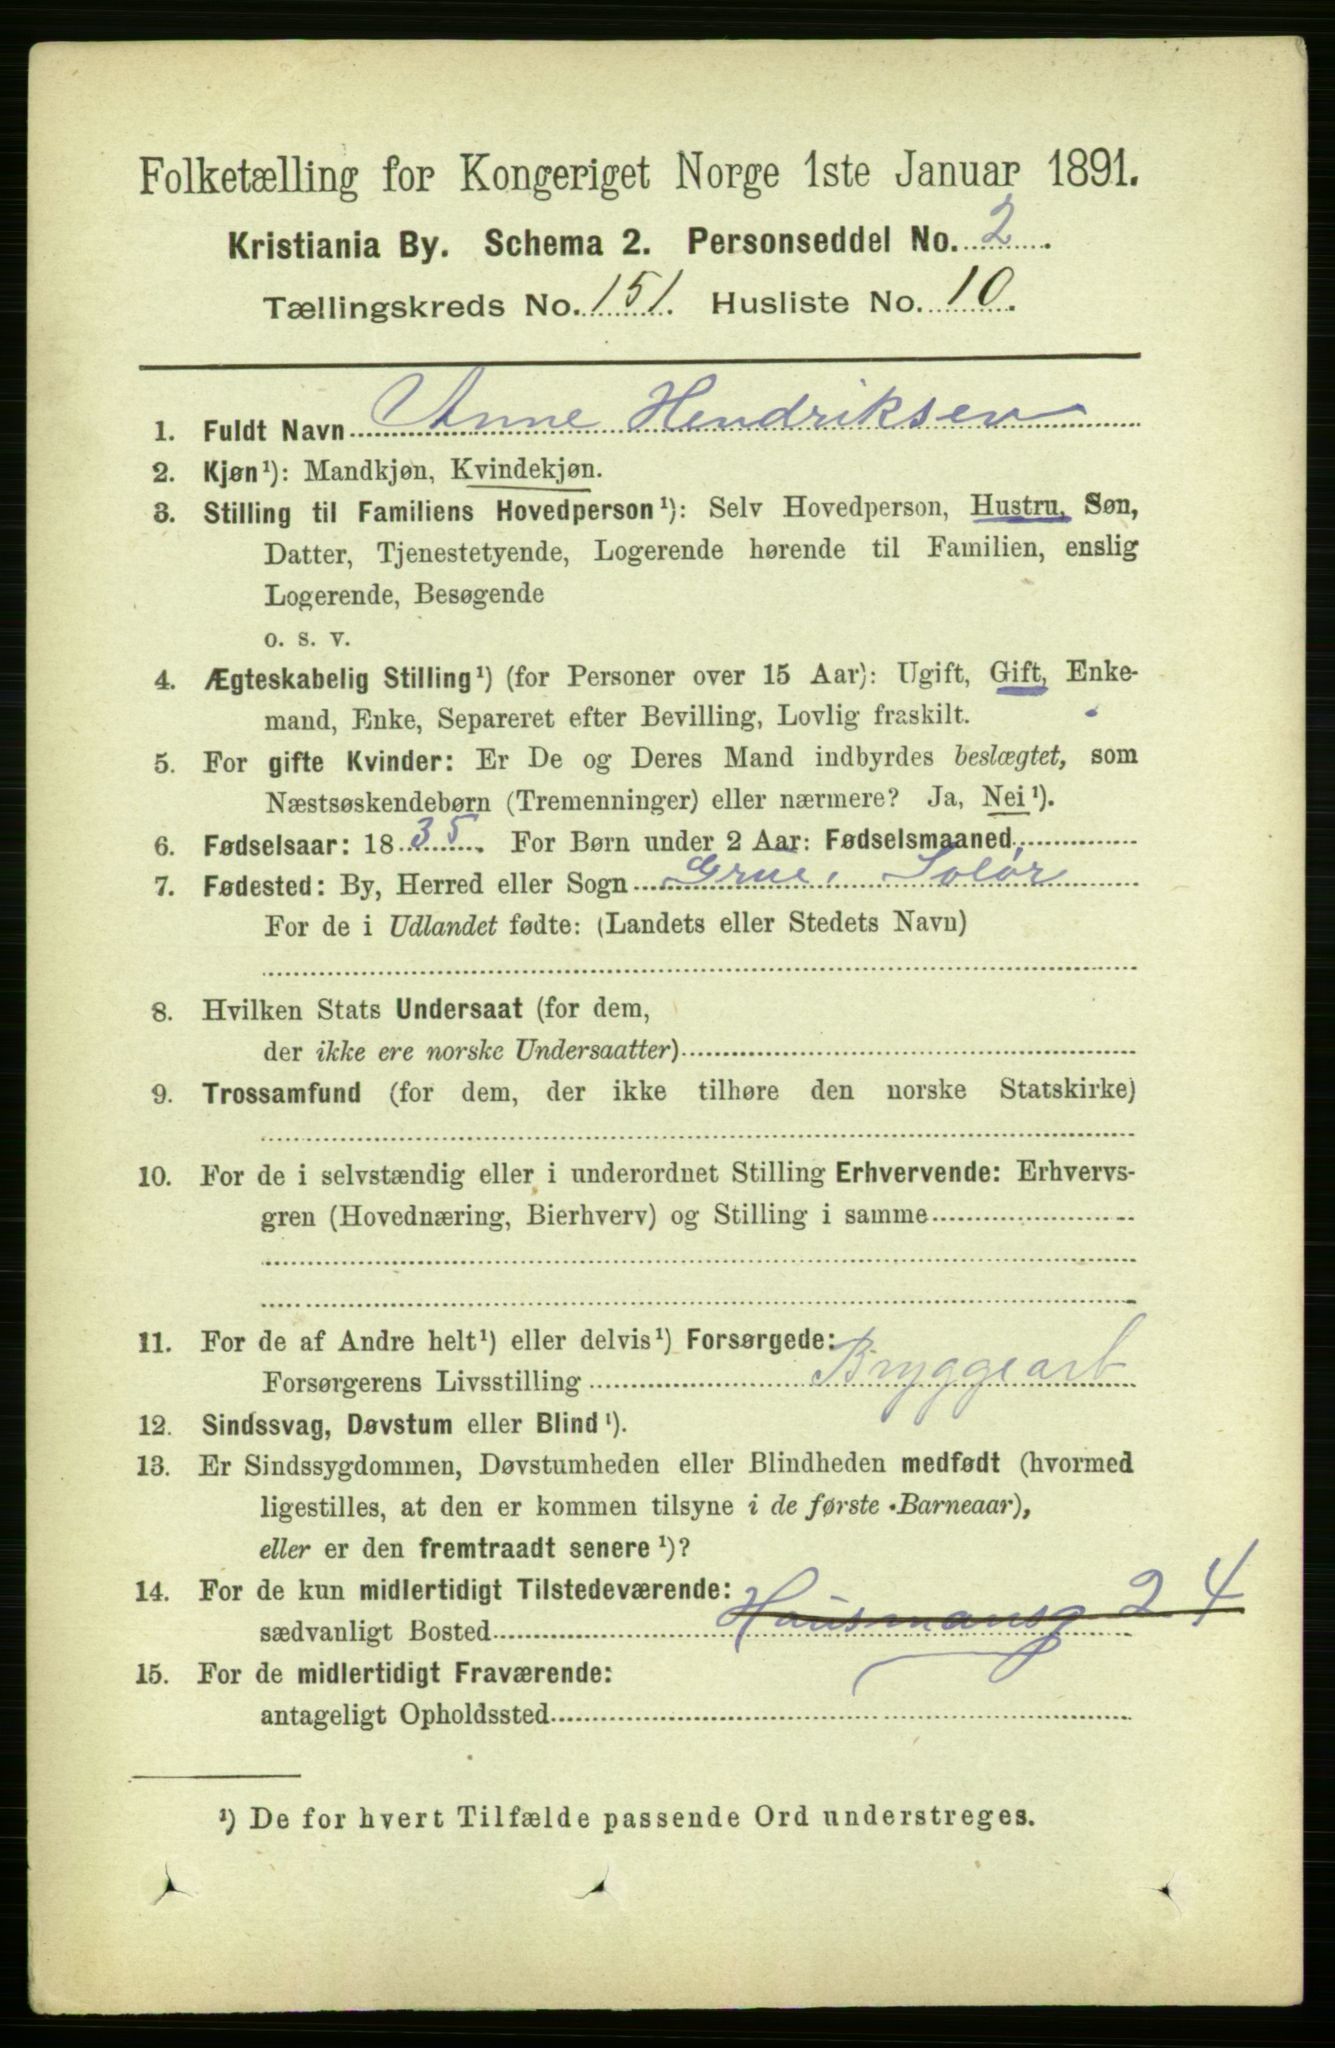 Folketælling for Kongeriget Norge 1ste Januar 1891.
Kristiania By. Schema 2. Personseddel No. 2.
Tællingskreds No. 151. Husliste No. 10.
1. Fuldt Navn Anne Hendriksen
2. Kjøn¹): Mandkjøn, Kvindekjøn.
3. Stilling til Familiens Hovedperson¹): Selv Hovedperson, Hustru, Søn,
Datter, Tjenestetyende, Logerende hørende til Familien, enslig
Logerende, Besøgende
o. s. v.
4. Ægteskabelig Stilling¹) (for Personer over 15 Aar): Ugift, Gift, Enke-
mand, Enke, Separeret efter Bevilling, Lovlig fraskilt.
5. For gifte Kvinder: Er De og Deres Mand indbyrdes beslægtet, som
Næstsøskendebørn (Tremenninger) eller nærmere? Ja, Nei¹).
6. Fødselsaar: 1835. For Børn under 2 Aar: Fødselsmaaned
7. Fødested: By, Herred eller Sogn Grue, Solør
For de i Udlandet fødte: (Landets eller Stedets Navn)
8. Hvilken Stats Undersaat (for dem,
der ikke ere norske Undersaatter)
9. Trossamfund (for dem, der ikke tilhøre den norske Statskirke)
10. For de i selvstændig eller i underordnet Stilling Erhvervende: Erhvervs-
gren (Hovednæring, Bierhverv) og Stilling i samme
11. For de af Andre helt¹) eller delvis¹) Forsørgede:
Forsørgerens Livsstilling Bryggearb
12. Sindssvag, Døvstum eller Blind¹).
13. Er Sindssygdommen, Døvstumheden eller Blindheden medfødt (hvormed
ligestilles, at den er kommen tilsyne i de første Barneaar),
eller er den fremtraadt senere¹)?
14. For de kun midlertidigt Tilstedeværende:
sædvanligt Bosted Hausmansg 24
15. For de midlertidigt Fraværende:
antageligt Opholdssted
¹) De for hvert Tilfælde passende Ord understreges.